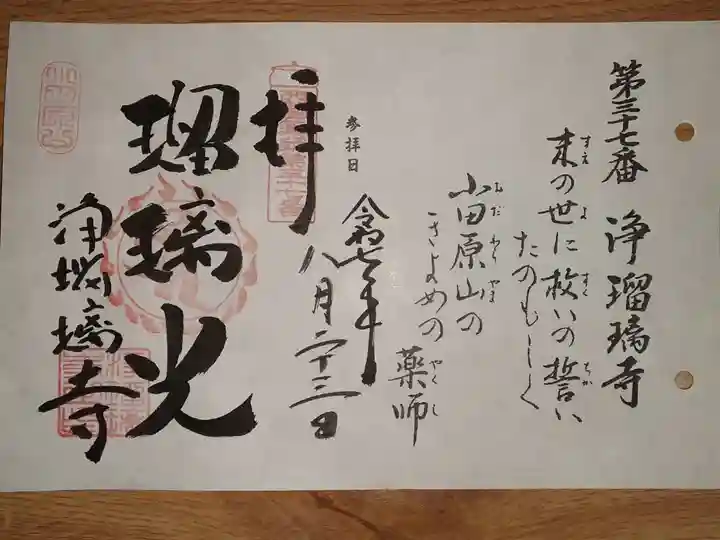 第三十七番 浄瑠璃寺
末の世に救いの誓い
たのもしく
小田原山の
きよめの薬師
参拝日
令和七年
八月二十三日
拝
瑠璃光
浄瑠璃寺